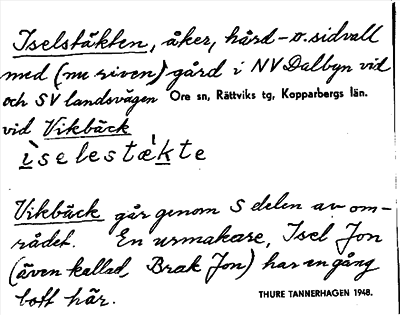 Iselstäkten, åker, hård- o. sidvall
med (nu riven) gård i NV Dalbyn vid
och SV landsvägen Ore sn, Rättviks tg, Kopparbergs län.
vid Vikbäck
ìselestæ̀kte
Vikbäck går genom S delen av om-
rådet. En urmakare, Isel Jon
(även kallad Brak Jon) har en gång
bott här.
THURE TANNERHAGEN 1948.